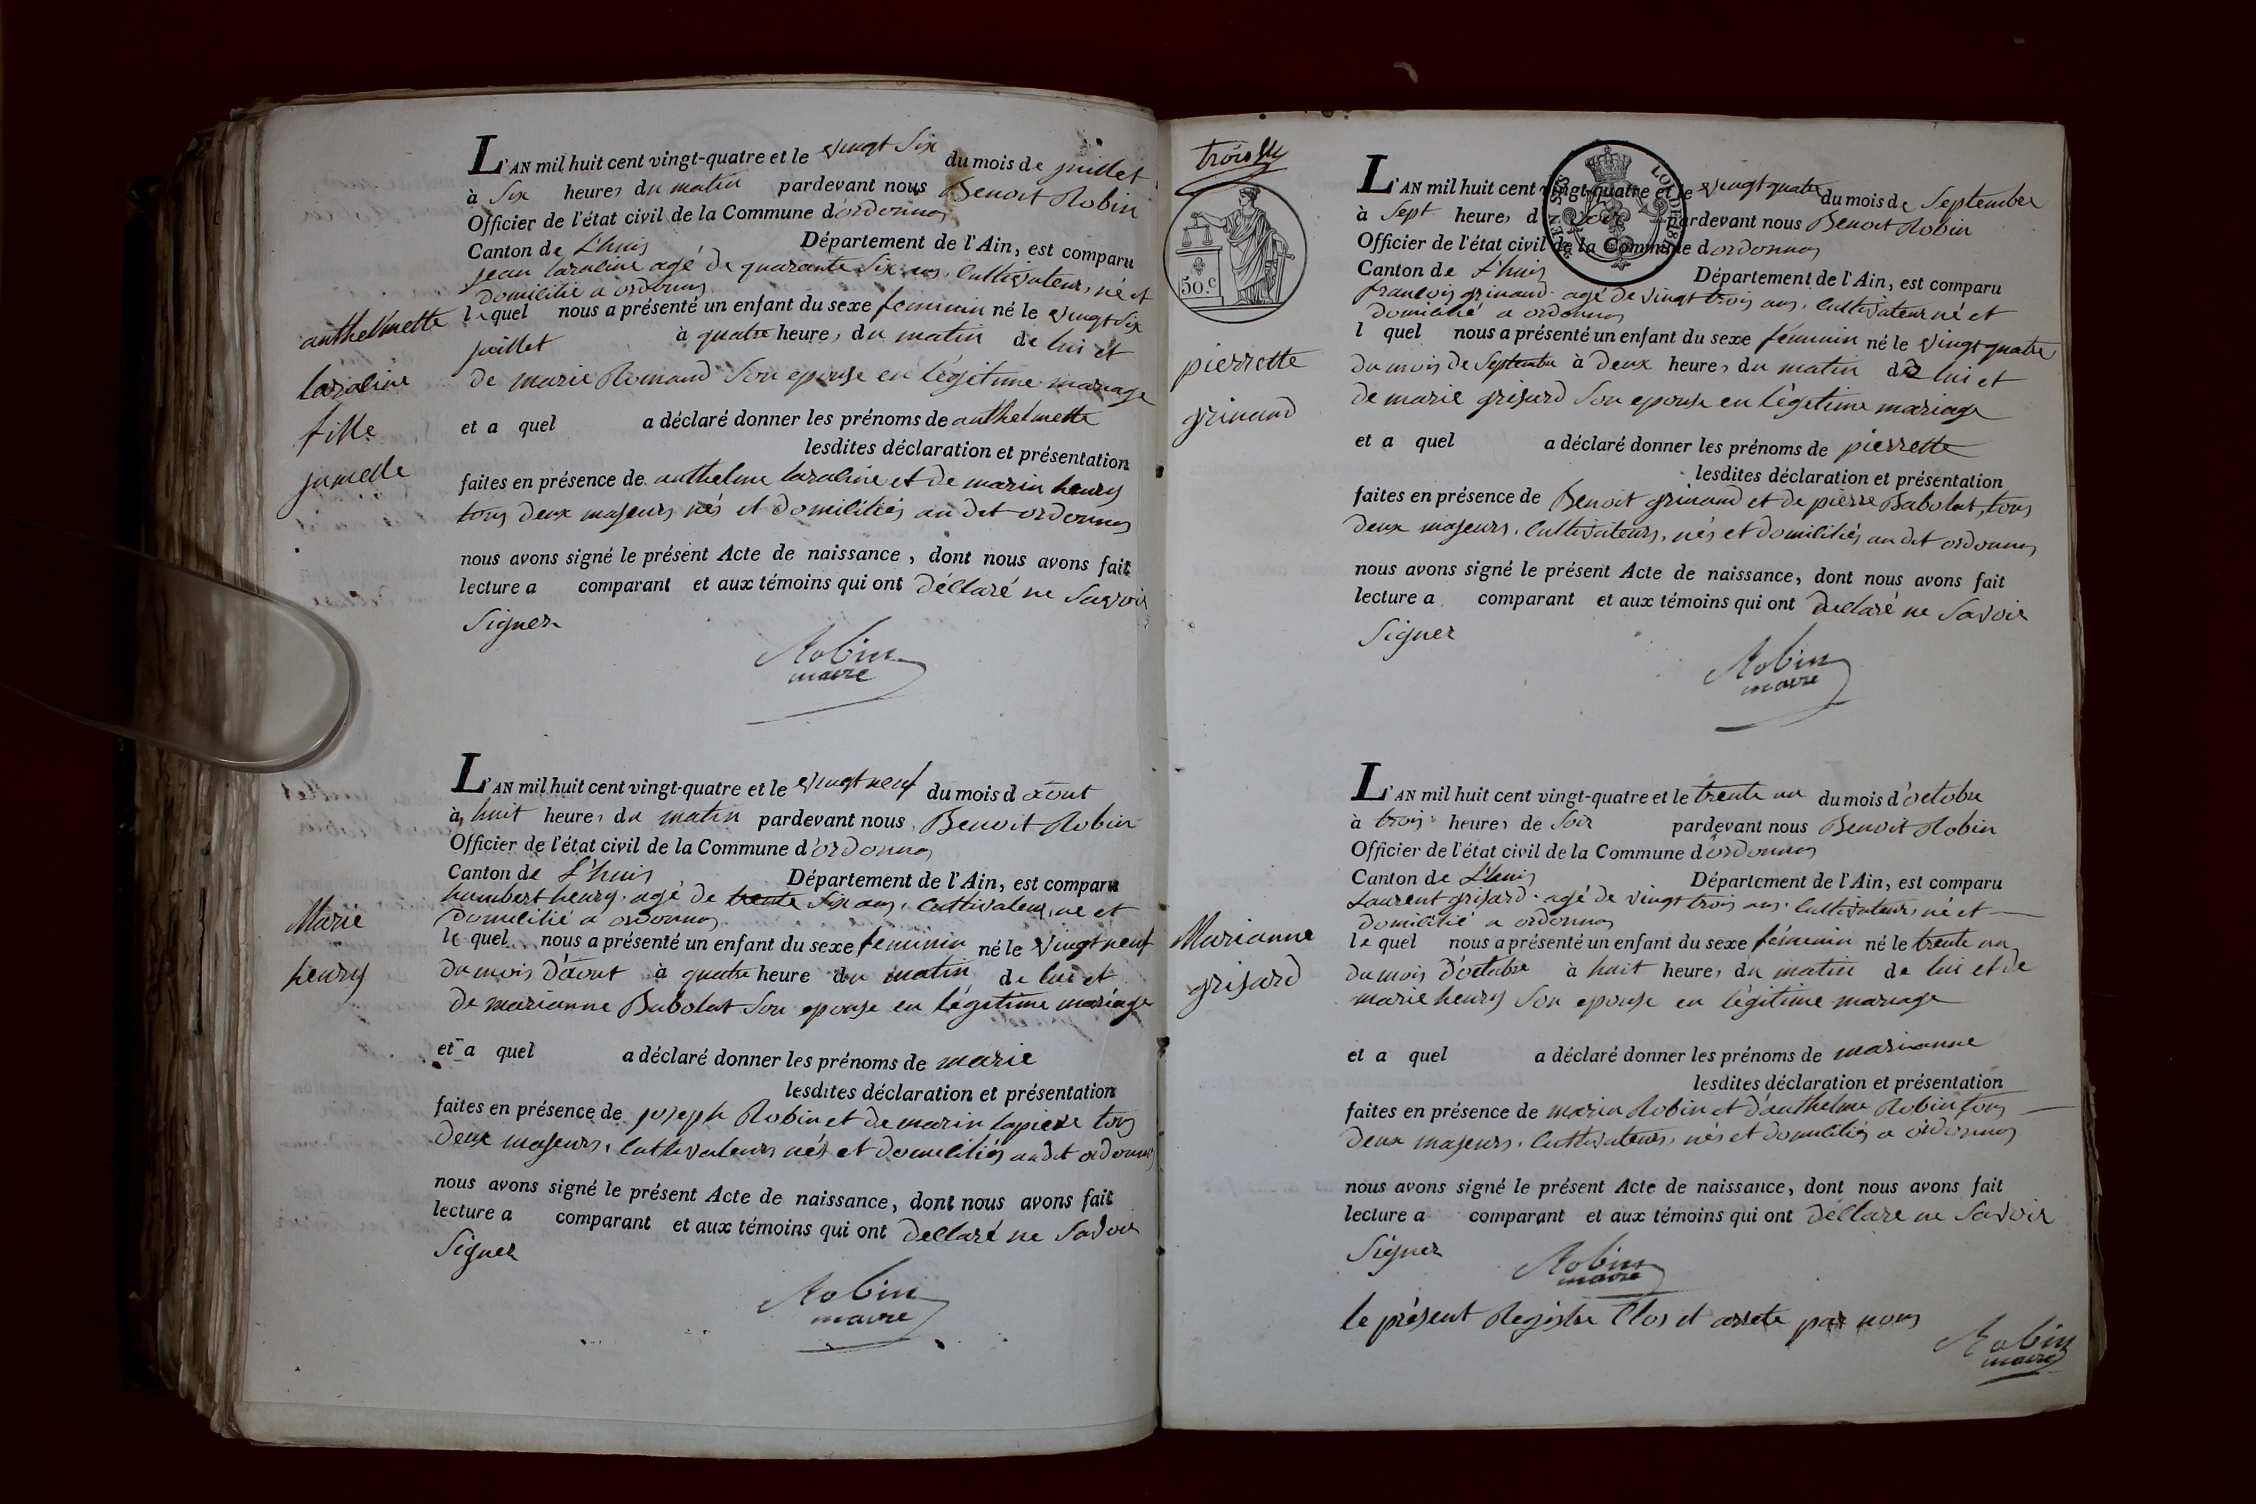 L'AN mil huit cent vingt-quatre et le vingt Six du mois de juillet
à Six heures du matin pardevant nous Benoit Robin
Officier de l'état civil de la Commune d'ordonnas
Canton de L'huis Département de l'Ain, est comparu
jean laraline agé de quarante Six ans, Cultivateur, né et
domicilié a ordonnas
le quel nous a présenté un enfant du sexe feminin né le vingt Six
juillet à quatre heures du matin de lui et
de marie Romand Son epouse en légitime mariage
et a quel a déclaré donner les prénoms de anthelmette
lesdites déclaration et présentation
faites en présence de anthelme laraline et de marin henry
tous deux majeurs nés et domiciliés au dit ordonnas
nous avons signé le présent Acte de naissance, dont nous avons fait
lecture a comparant et aux témoins qui ont déclaré ne Savoir
Signer
Robin
maire
anthelmette
laraline
fille
jumelle
L'AN mil huit cent vingt-quatre et le vingt neuf du mois d aout
à huit heures du matin pardevant nous Benoit Robin
Officier de l'état civil de la Commune d'ordonnas
Canton de L'huis Département de l'Ain, est comparu
humbert henry agé de trente Six ans, Cultivateur, né et
domicilié a ordonnas
le quel nous a présenté un enfant du sexe feminin né le vingt neuf
du mois d'aout à quatre heure du matin de lui et
de marianne Babolat Son epouse en légitime mariage
et a quel a déclaré donner les prénoms de marie
lesdites déclaration et présentation
faites en présence de joseph Robin et de marin lapiere tous
deux majeurs, Cultivateurs nés et domiciliés au dit ordonnas
nous avons signé le présent Acte de naissance, dont nous avons fait
lecture a comparant et aux témoins qui ont declaré ne Savoir
Signer
Robin
maire
Marie
henry
trois
50.c
L'AN mil huit cent vingt-quatre et le vingt quatre du mois de September
à Sept heures d Soir pardevant nous Benoit Robin
Officier de l'état civil de la Commune d'ordonnas
Canton de L'huis Département de l'Ain, est comparu
francois grinand agé de vingt trois ans, Cultivateur né et
domicilié a ordonnas
l quel nous a présenté un enfant du sexe féminin né le vingt quatre
du mois de Septembre à deux heures du matin de lui et
de marie grisard Son epouse en légitime mariage
et a quel a déclaré donner les prénoms de pierrette
lesdites déclaration et présentation
faites en présence de Benoit grinand et de pierre Babolat, tous
deux majeurs, Cultivateurs, nés et domiciliés au dit ordonnas
nous avons signé le présent Acte de naissance, dont nous avons fait
lecture a comparant et aux témoins qui ont declaré ne Savoir
Signer
Robin
maire
pierrette
grinand
L'AN mil huit cent vingt-quatre et le trente un du mois d'octobre
à trois heures de Soir pardevant nous Benoit Robin
Officier de l'état civil de la Commune d'ordonnas
Canton de L'huis Département de l'Ain, est comparu
Laurent grisard agé de vingt trois ans, Cultivateur, né et
domicilié a ordonnas
le quel nous a présenté un enfant du sexe féminin né le trente un
du mois d'octobre à huit heures du matin de lui et de
marie henry Son epouse en légitime mariage
et a quel a déclaré donner les prénoms de marianne
lesdites déclaration et présentation
faites en présence de marin Robin et d'anthelme Robin tous
deux majeurs, Cultivateurs, nés et domiciliés a ordonnas
nous avons signé le présent Acte de naissance, dont nous avons fait
lecture a comparant et aux témoins qui ont déclaré ne Savoir
Signer
Robin
maire
Marianne
grisard
le présent Registre Clos et arreté par nous
Robin
maire